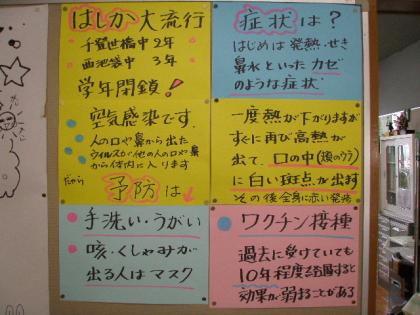 はしか大流行
千登世橋中2年
西池袋中 3年
学年閉鎖!
空気感染です.
人の口や鼻から出た
ウイルスが他の人の口や鼻
から体内に入ります
だから
予防は↓
手洗い・うがい
咳・くしゃみが
出る人はマスク
症状は?
はじめは発熱・せき
鼻水といったカゼ
のような症状
一度熱が下がりますが
すぐに再び高熱が
出て、口の中(頬のウラ)
に白い斑点が出ます
その後全身に赤い発疹
ワクチン接種
過去に受けていても
10年程度経過すると
効果が弱まることがある